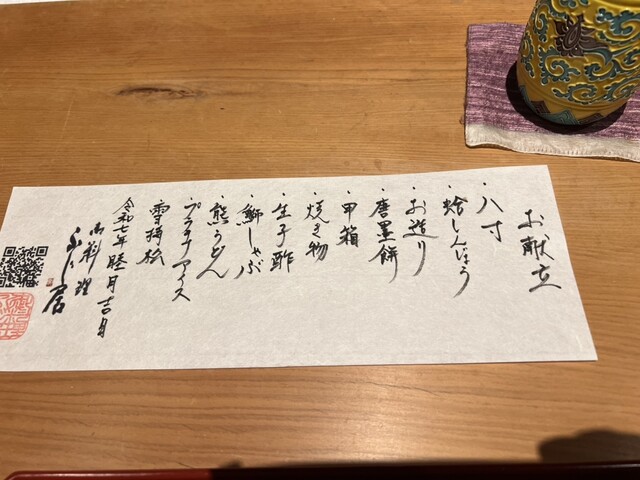 お献立
・八寸
・蛤しんじょう
・お造り
・唐墨餅
・甲箱
・焼き物
・生子酢
・鰤しゃぶ
・熊うどん
・プラチナアイス
雪梅桜
令和七年睦月吉日
御料理
ふじ居